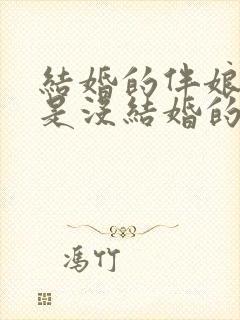 結婚的伴娘
是沒結婚的
馮竹